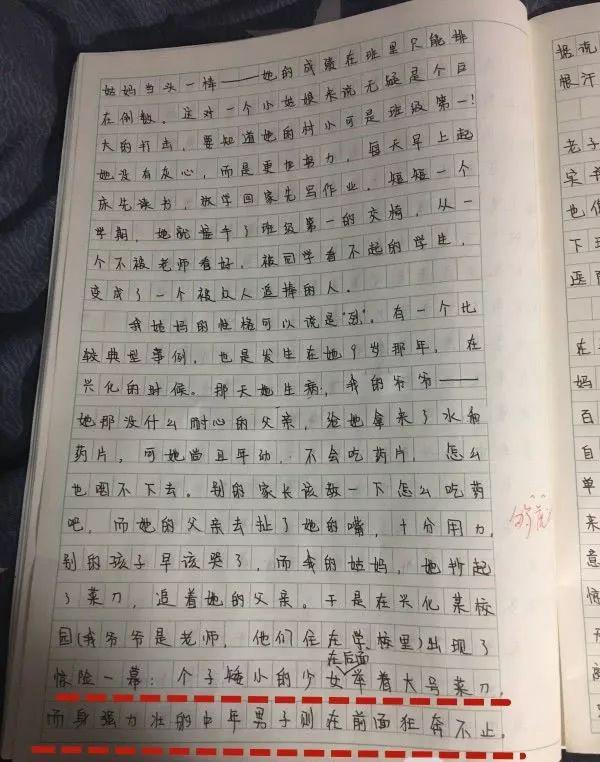 姑妈当头一棒——她的成绩在班里只能排
在倒数。这对一个小姑娘来说无疑是个巨
大的打击，要知道她的村小可是班级第一！
她没有灰心，而是更加努力，每天早上起
床先读书，放学回家先写作业，短短一个
学期，她就接手了班级第一的交椅，从一
个不被老师看好，被同学看不起的学生，
变成了一个被众人追捧的人。
我姑妈的性格可以说是"烈"。有一个比
较典型事例，也是发生在她9岁那年，在
兴化的时候。那天她生病，我的爷爷——
她那没什么耐心的父亲，给她拿来了水和
药片，可她尚且年幼，不会吃药片，怎么
也咽不下去。别的家长该教一下怎么吃药
吧，而她的父亲去扯了她的嘴，十分用力，
别的孩子早该哭了，而我的姑妈，她抄起
了菜刀，追着她的父亲。于是在兴化某校
园(我爷爷是老师，他们住在学校里)出现了
惊险一幕：个子矮小的少女在后面举着大号菜刀，
而身强力壮的中年男子则在前面狂奔不止。
据说
恨汗
老子
实
也
下
医
在
妈
百
自
单
来
意
惊